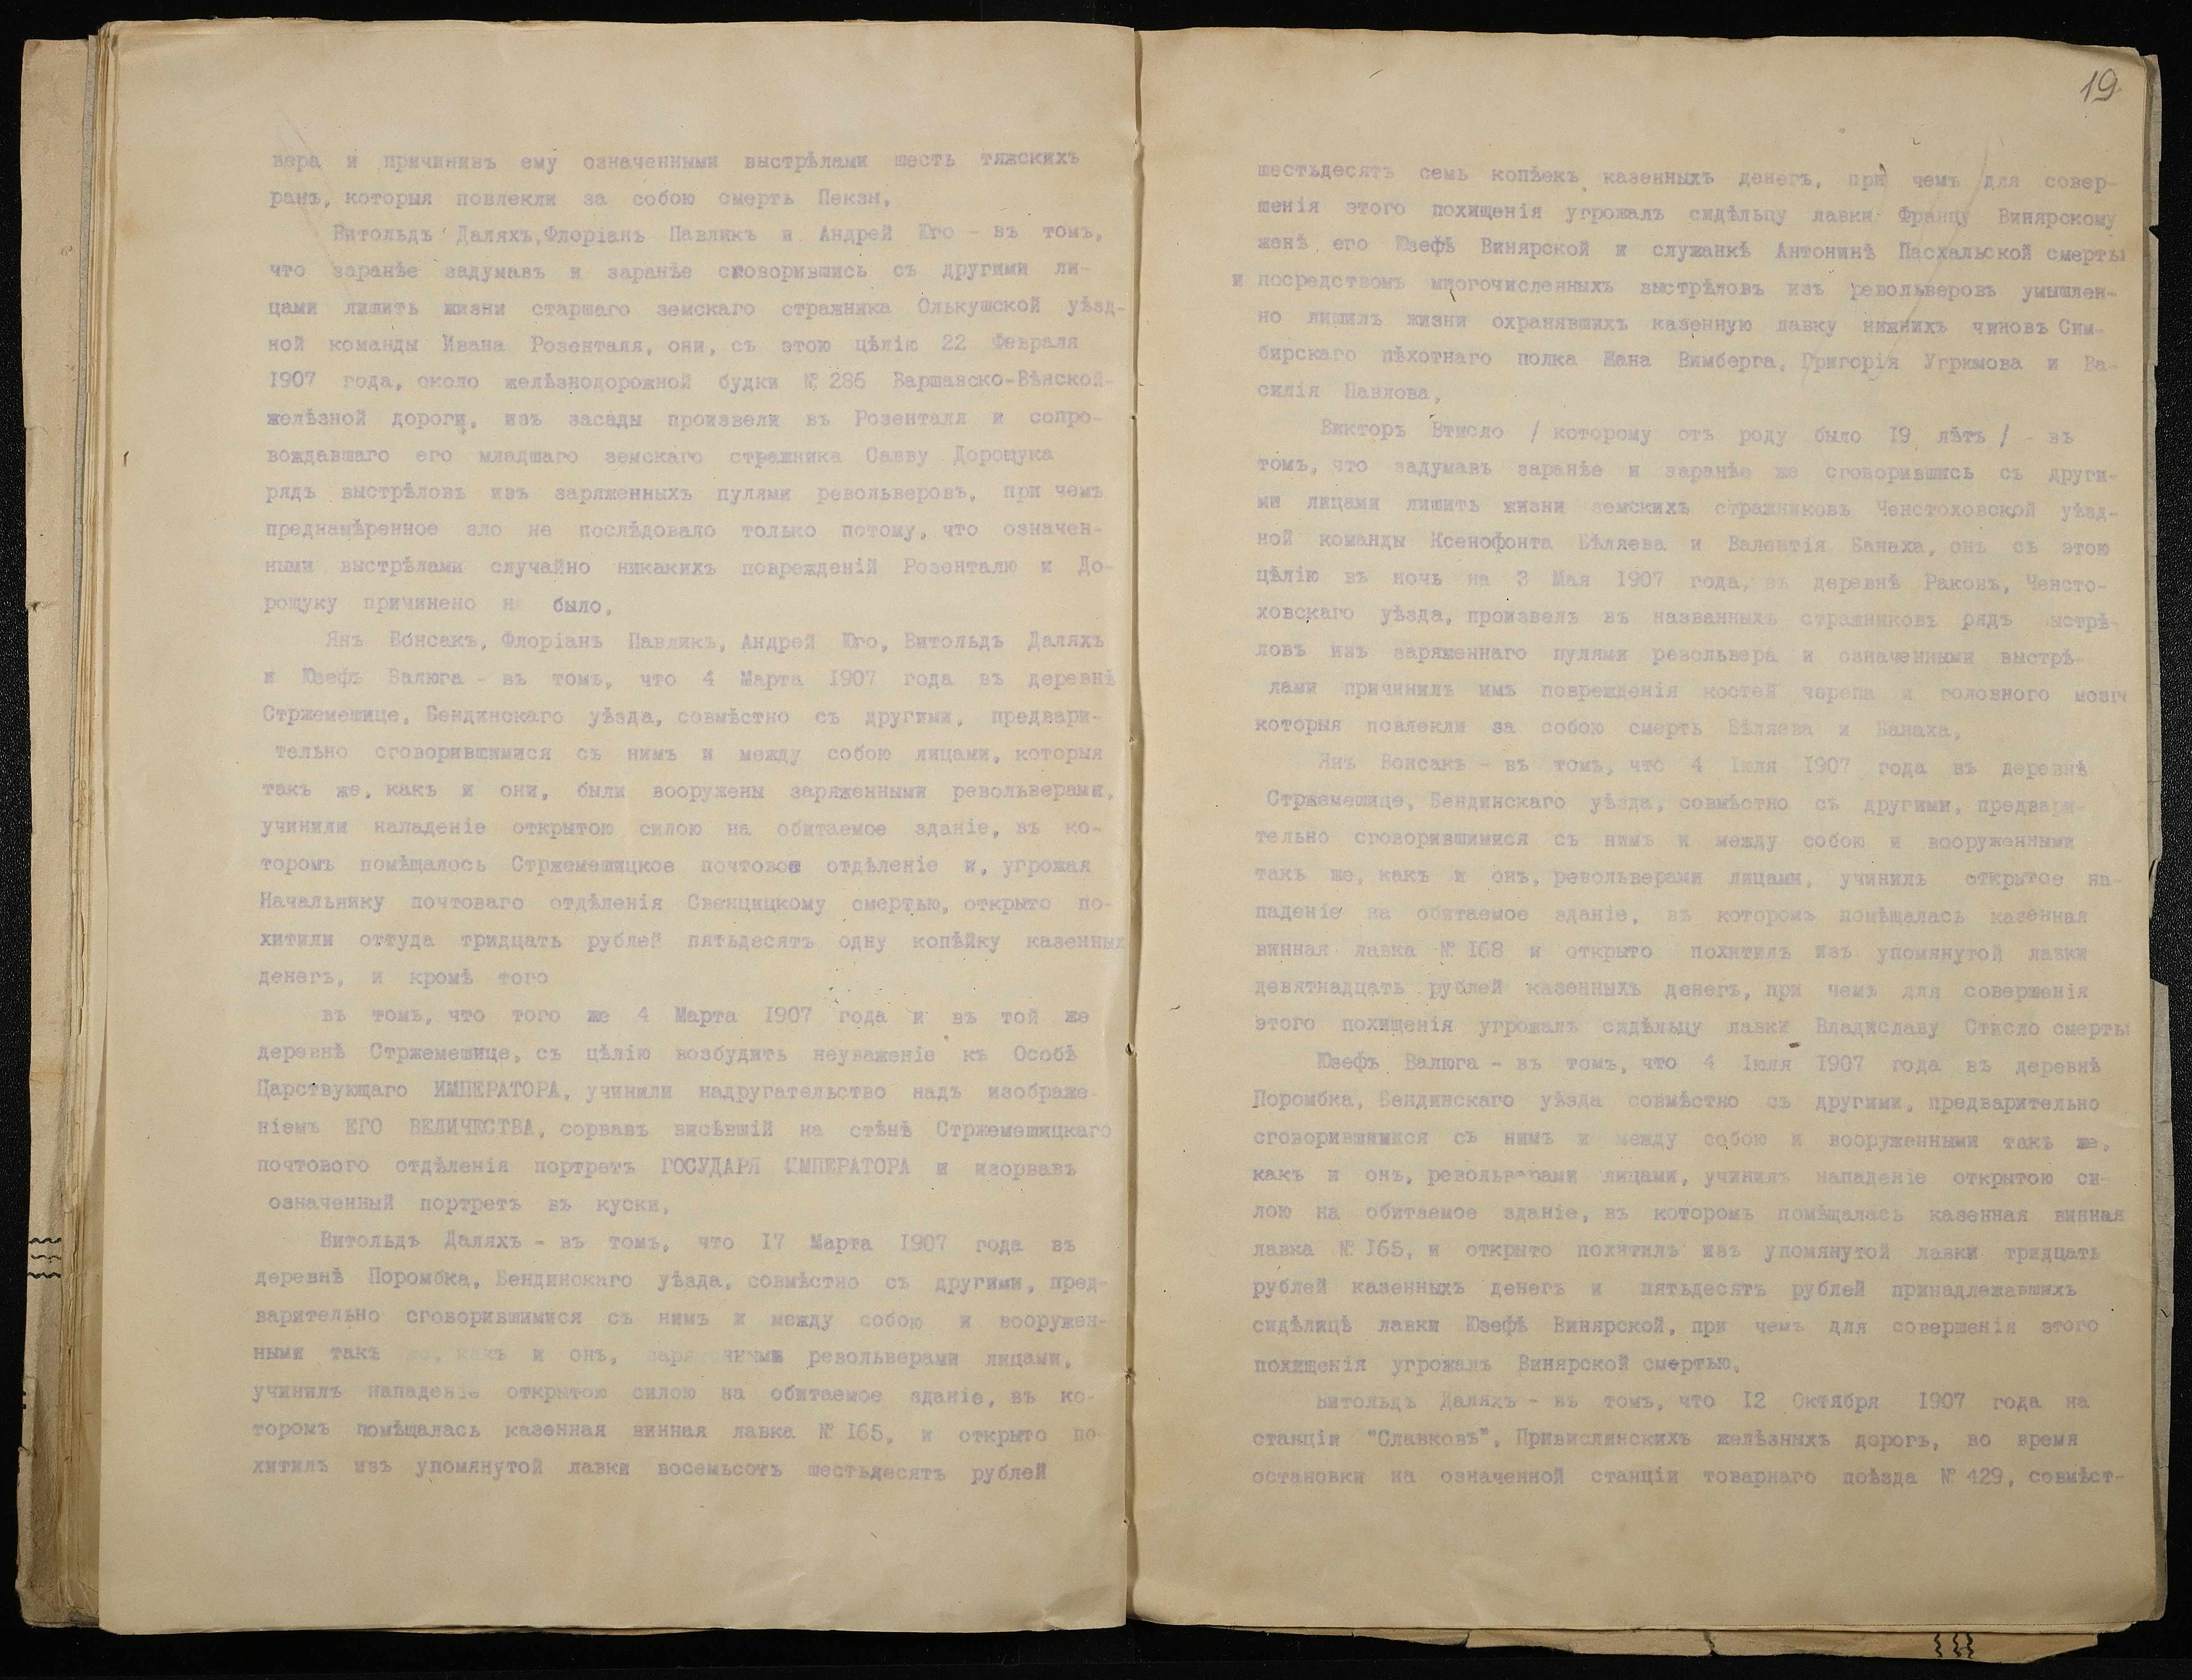 вера и причинивъ ему означенными выстрѣлами шесть тяжскихъ
ранъ, которыя повлекли за собою смерть Пекзы.
Витольдъ Даляхъ, Флоріанъ Павликъ и Андрей Юго - въ томъ,
что заранѣе задумавъ и заранѣе сговорившись съ другими ли-
цами лишить жизни старшаго земскаго стражника Олькушской уѣзд-
ной команды Ивана Розенталя, они, съ этою цѣлію 22 Февраля
1907 года, около желѣзнодорожной будки № 286 Варшавско-Вѣнской
желѣзной дороги, изъ засады произвели въ Розенталя и сопро-
вождавшаго его младшаго земскаго стражника Савву Дорощука
рядъ выстрѣловъ изъ заряженныхъ пулями револьверовъ, при чемъ
преднамѣренное зло не послѣдовало только потому, что означен-
ными выстрѣлами случайно никакихъ поврежденій Розенталю и До-
рощуку причинено не было.
Янъ Вонсакъ, Флоріанъ Павликъ, Андрей Юго, Витольдъ Даляхъ
и Юзефъ Валюга - въ томъ, что 4 Марта 1907 года въ деревнѣ
Стржемешице, Бендинскаго уѣзда, совмѣстно съ другими, предвари-
тельно сговорившимися съ нимъ и между собою лицами, которыя
такъ же, какъ и они, были вооружены заряженными револьверами,
учинили нападеніе открытою силою на обитаемое зданіе, въ ко-
торомъ помѣщалось Стржемешицкое почтовое отдѣленіе и, угрожая
Начальнику почтоваго отдѣленія Свенцицкому смертью, открыто по-
хитили оттуда тридцать рублей пятьдесятъ одну копѣйку казенныхъ
денегъ, и кромѣ того
въ томъ, что того же 4 Марта 1907 года и въ той же
деревнѣ Стржемешице, съ цѣлію возбудить неуваженіе къ Особѣ
Царствующаго ИМПЕРАТОРА, учинили надругательство надъ изображе-
ніемъ ЕГО ВЕЛИЧЕСТВА, сорвавъ висѣвшій на стѣнѣ Стржемешицкаго
почтового отдѣленія портретъ ГОСУДАРЯ ИМПЕРАТОРА и изорвавъ
означенный портретъ въ куски.
Витольдъ Даляхъ - въ томъ, что 17 Марта 1907 года въ
деревнѣ Поромбка, Бендинскаго уѣзда, совмѣстно съ другими, пред-
варительно сговорившимися съ нимъ и между собою и вооружен-
ными такъ же, какъ и онъ, заряженными револьверами лицами,
учинилъ нападеніе открытою силою на обитаемое зданіе, въ ко-
торомъ помѣщалась казенная винная лавка № 165, и открыто по-
хитилъ изъ упомянутой лавки восемьсотъ шестьдесятъ рублей
19
шестьдесятъ семь копѣекъ казенныхъ денегъ, при чемъ для совер-
шенія этого похищенія угрожалъ сидѣльцу лавки Францу Винярскому
женѣ его Юзефѣ Винярской и служанкѣ Антонинѣ Пасхальской смертью
и посредствомъ многочисленныхъ выстрѣловъ изъ револьверовъ умышлен-
но лишилъ жизни охранявшихъ казенную лавку нижнихъ чиновъ Сим-
бирскаго пѣхотнаго полка Жана Вимберга, Григорія Угрюмова и Ва-
силія Павлова.
Викторъ Втисло / которому отъ роду было 19 лѣтъ / - въ
томъ, что задумавъ заранѣе и заранѣе же сговорившись съ други-
ми лицами лишить жизни земскихъ стражниковъ Ченстоховской уѣзд-
ной команды Ксенофонта Бѣляева и Валентія Банаха, онъ съ этою
цѣлію въ ночь на 3 Мая 1907 года, въ деревнѣ Раковъ, Ченсто-
ховскаго уѣзда, произвелъ въ названныхъ стражниковъ рядъ выстрѣ-
ловъ изъ заряженнаго пулями револьвера и означенными выстрѣ-
лами причинилъ имъ поврежденія костей черепа и головного мозга
которыя повлекли за собою смерть Бѣляева и Банаха.
Янъ Вонсакъ - въ томъ, что 4 Іюля 1907 года въ деревнѣ
Стржемешице, Бендинскаго уѣзда, совмѣстно съ другими, предвари-
тельно сговорившимися съ нимъ и между собою и вооруженными
такъ же, какъ и онъ, револьверами лицами, учинилъ открытое на-
паденіе на обитаемое зданіе, въ которомъ помѣщалась казенная
винная лавка № 168 и открыто похитилъ изъ упомянутой лавки
девятнадцать рублей казенныхъ денегъ, при чемъ для совершенія
этого похищенія угрожалъ сидѣльцу лавки Владиславу Стисло смертью
Юзефъ Валюга - въ томъ, что 4 Іюля 1907 года въ деревнѣ
Поромбка, Бендинскаго уѣзда совмѣстно съ другими, предварительно
сговорившимися съ нимъ и между собою и вооруженными такъ же,
какъ и онъ, револьверами лицами, учинилъ нападеніе открытою си-
лою на обитаемое зданіе, въ которомъ помѣщалась казенная винная
лавка № 165, и открыто похитилъ изъ упомянутой лавки тридцать
рублей казенныхъ денегъ и пятьдесятъ рублей принадлежавшихъ
сидѣлицѣ лавки Юзефѣ Винярской, при чемъ для совершенія этого
похищенія угрожалъ Винярской смертью.
Витольдъ Даляхъ - въ томъ, что 12 Октября 1907 года на
станціи "Славковъ", Привислинскихъ желѣзныхъ дорогъ, во время
остановки на означенной станціи товарнаго поѣзда № 429, совмѣст-